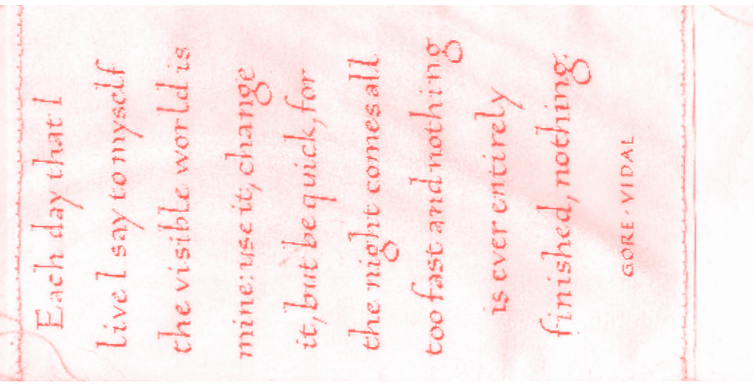 Each day that I
live I say to myself
the visible world is
mine: use it, change
it, but be quick, for
the night comes all
too fast and nothing
is ever entirely
finished, nothing.
GORE · VIDAL